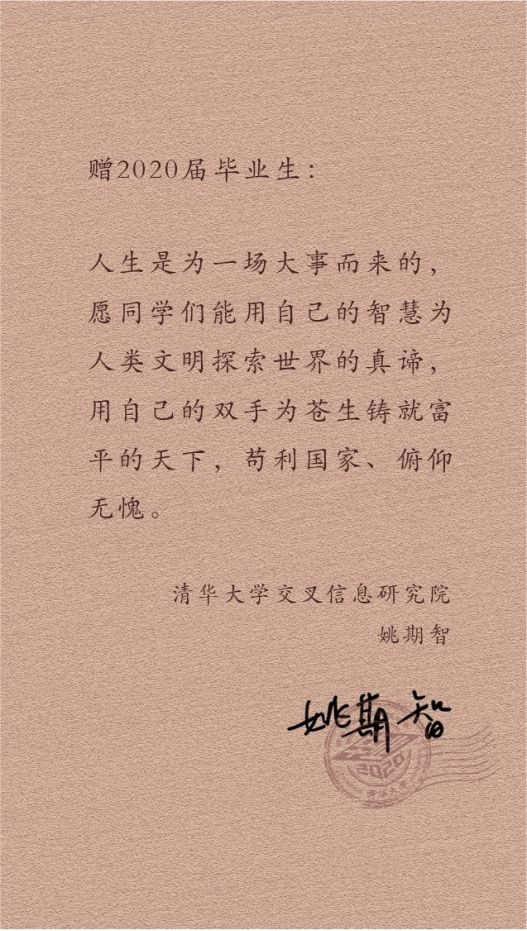 赠2020届毕业生：
人生是为一场大事而来的，
愿同学们能用自己的智慧为
人类文明探索世界的真谛，
用自己的双手为苍生铸就富
平的天下，苟利国家、俯仰
无愧。
清华大学交叉信息研究院
姚期智
姚期智
2020